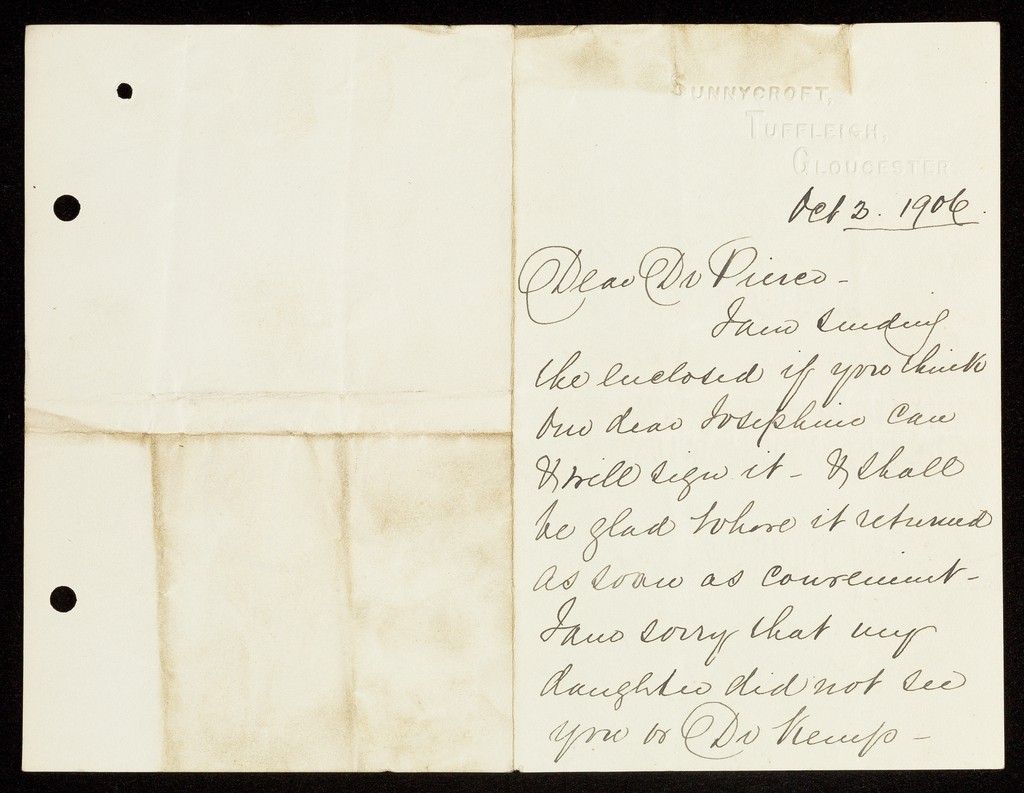 SUNNYCROFT,
TUFFLEIGH,
GLOUCESTER.
Oct 3. 1906.
Dear Dr Pierce -
I am sending
the enclosed if you think
our dear Josephine can
& will sign it - & shall
be glad to have it returned
as soon as convenient -
I am sorry that my
daughter did not see
you or Dr Kemp -